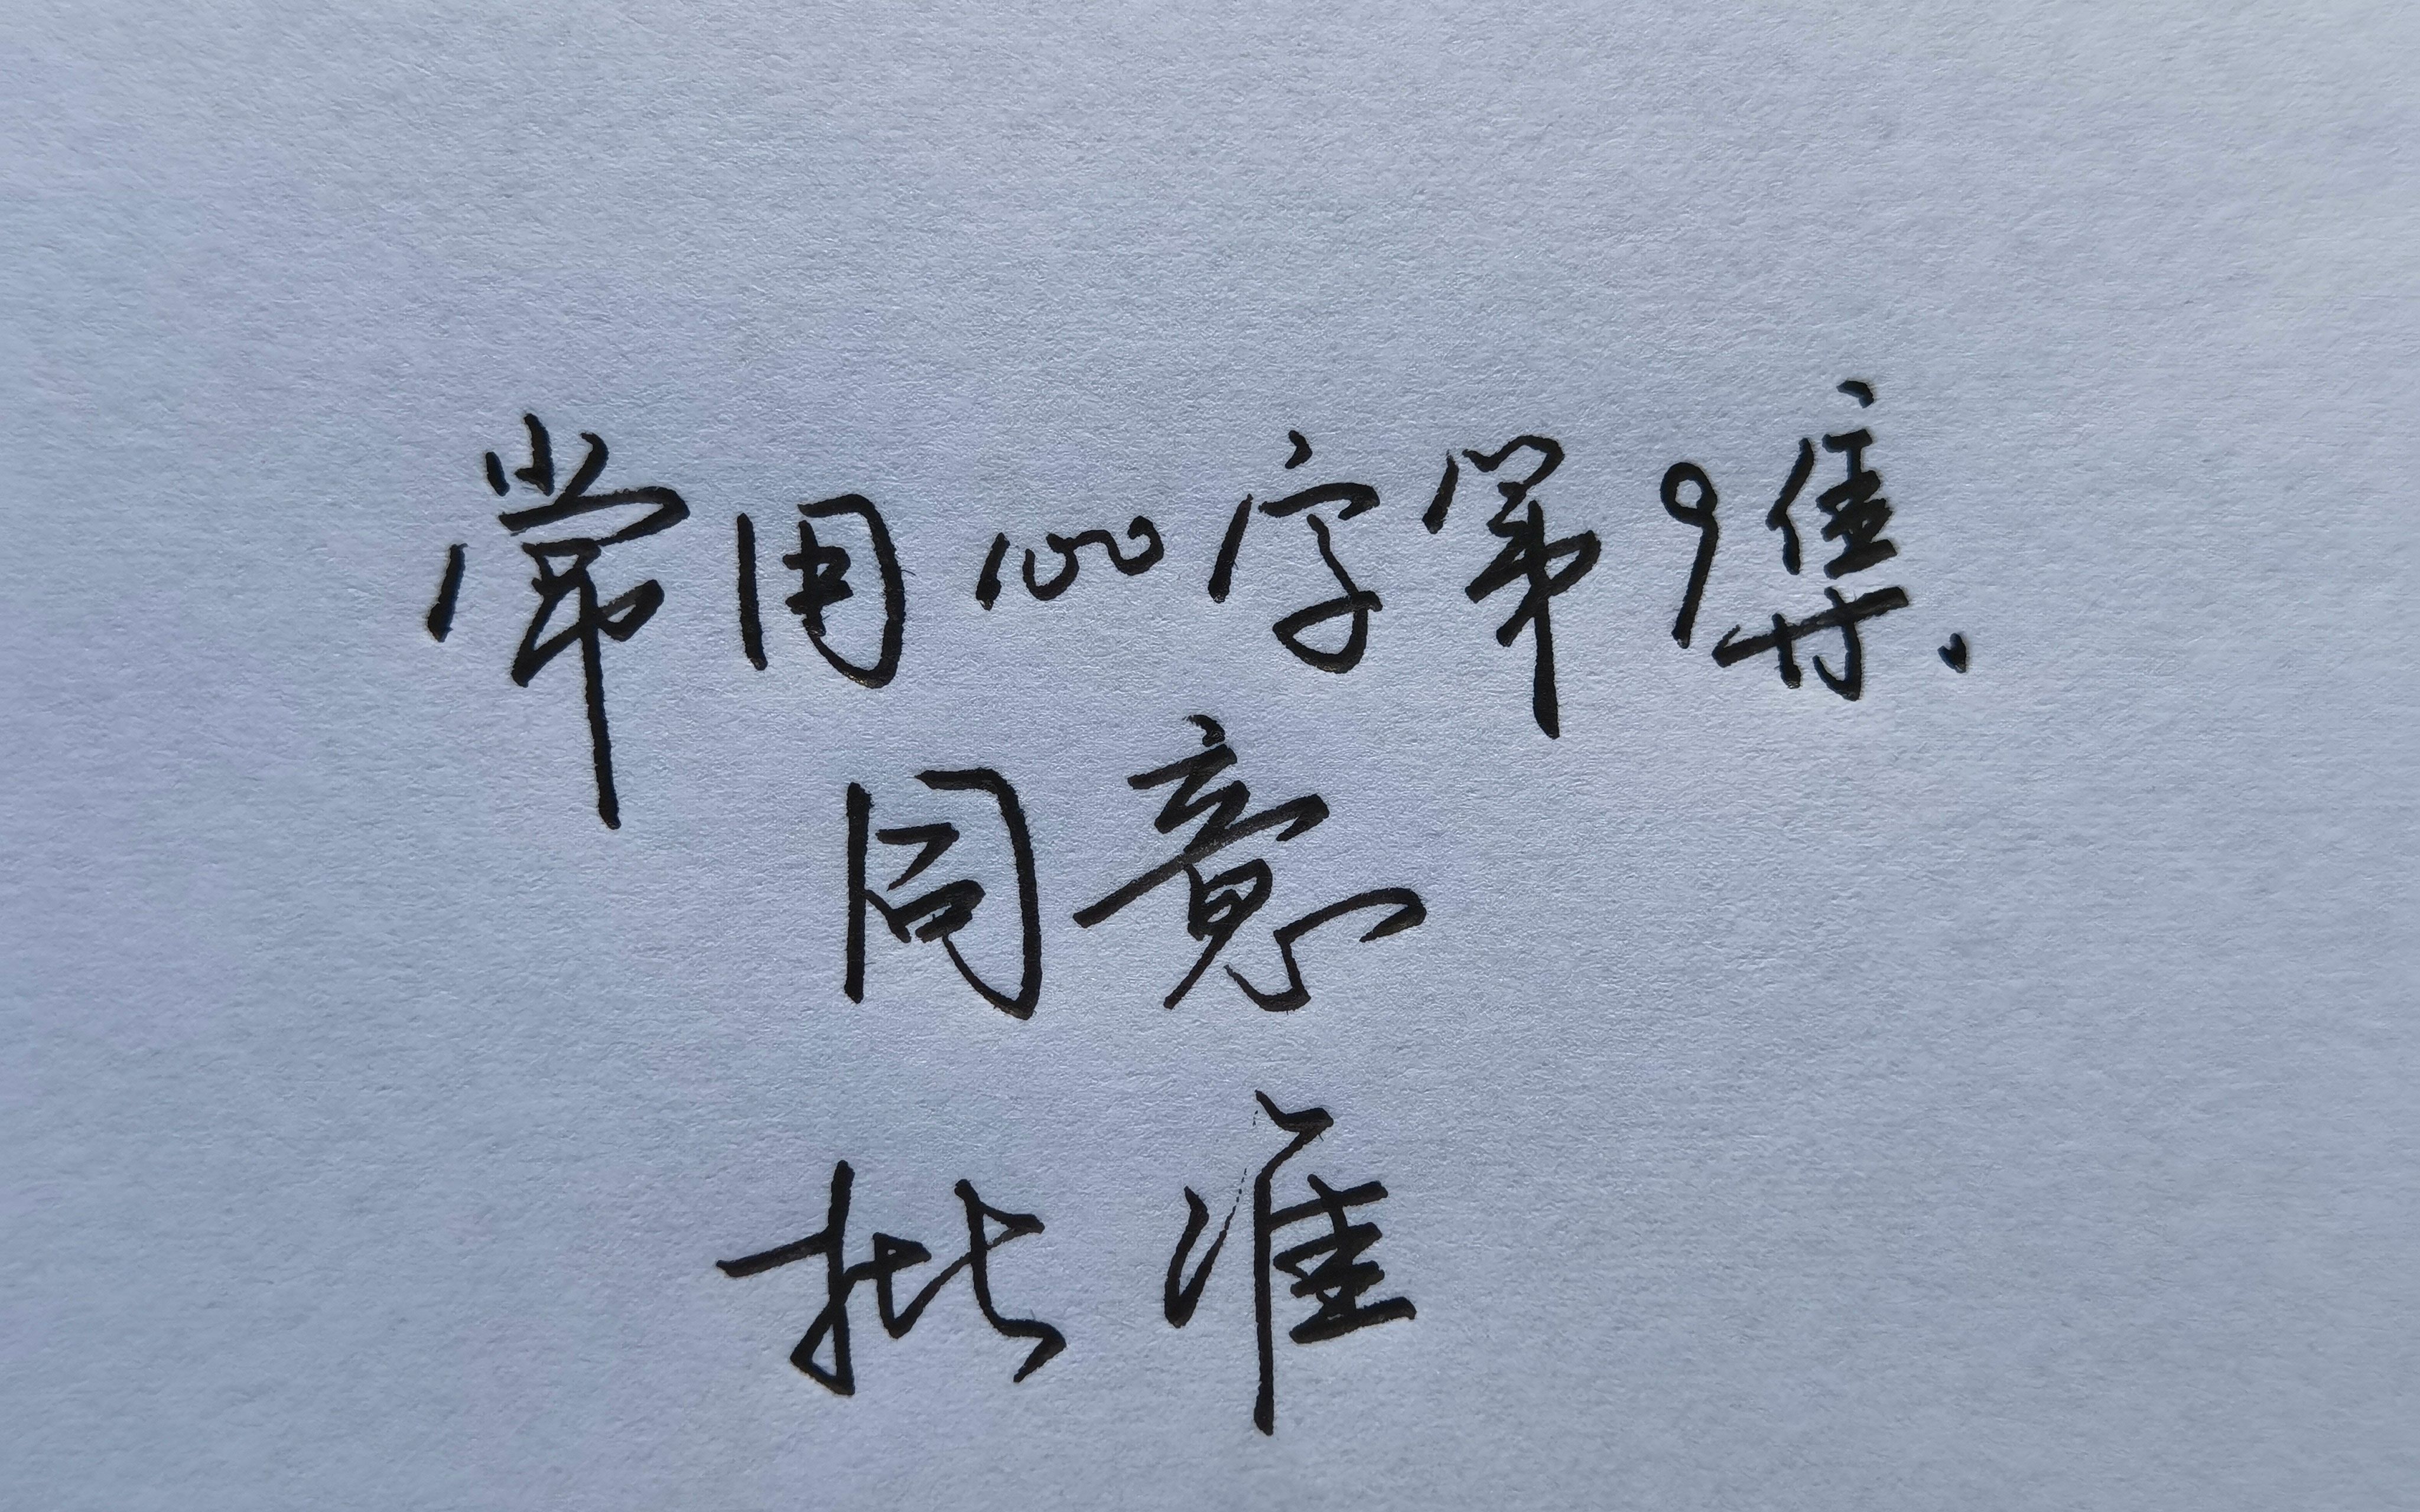 常用100字第9集.
同意
批准